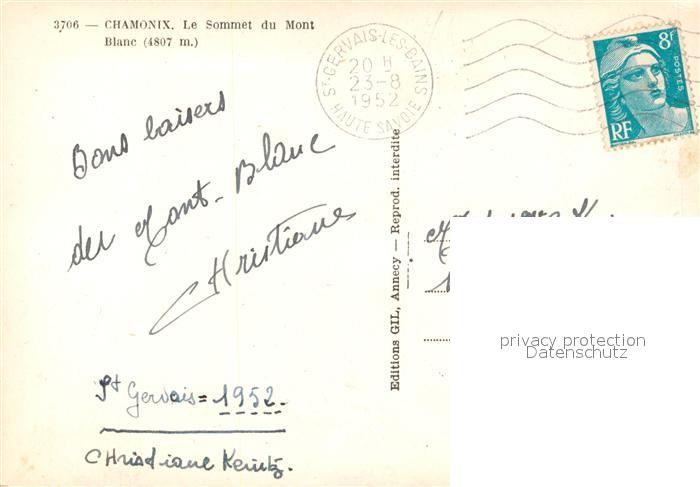 3706 — CHAMONIX. Le Sommet du Mont
Blanc (4807 m.)
ST GERVAIS-LES-BAINS
20 H
23-8
1952
HAUTE SAVOIE
8f
POSTES
RF
Bons baisers
du Mont-Blanc
Christiane
St Gervais = 1952.
Christiane
Editions GIL, Annecy — Reprod. interdite
privacy protection
Datenschutz